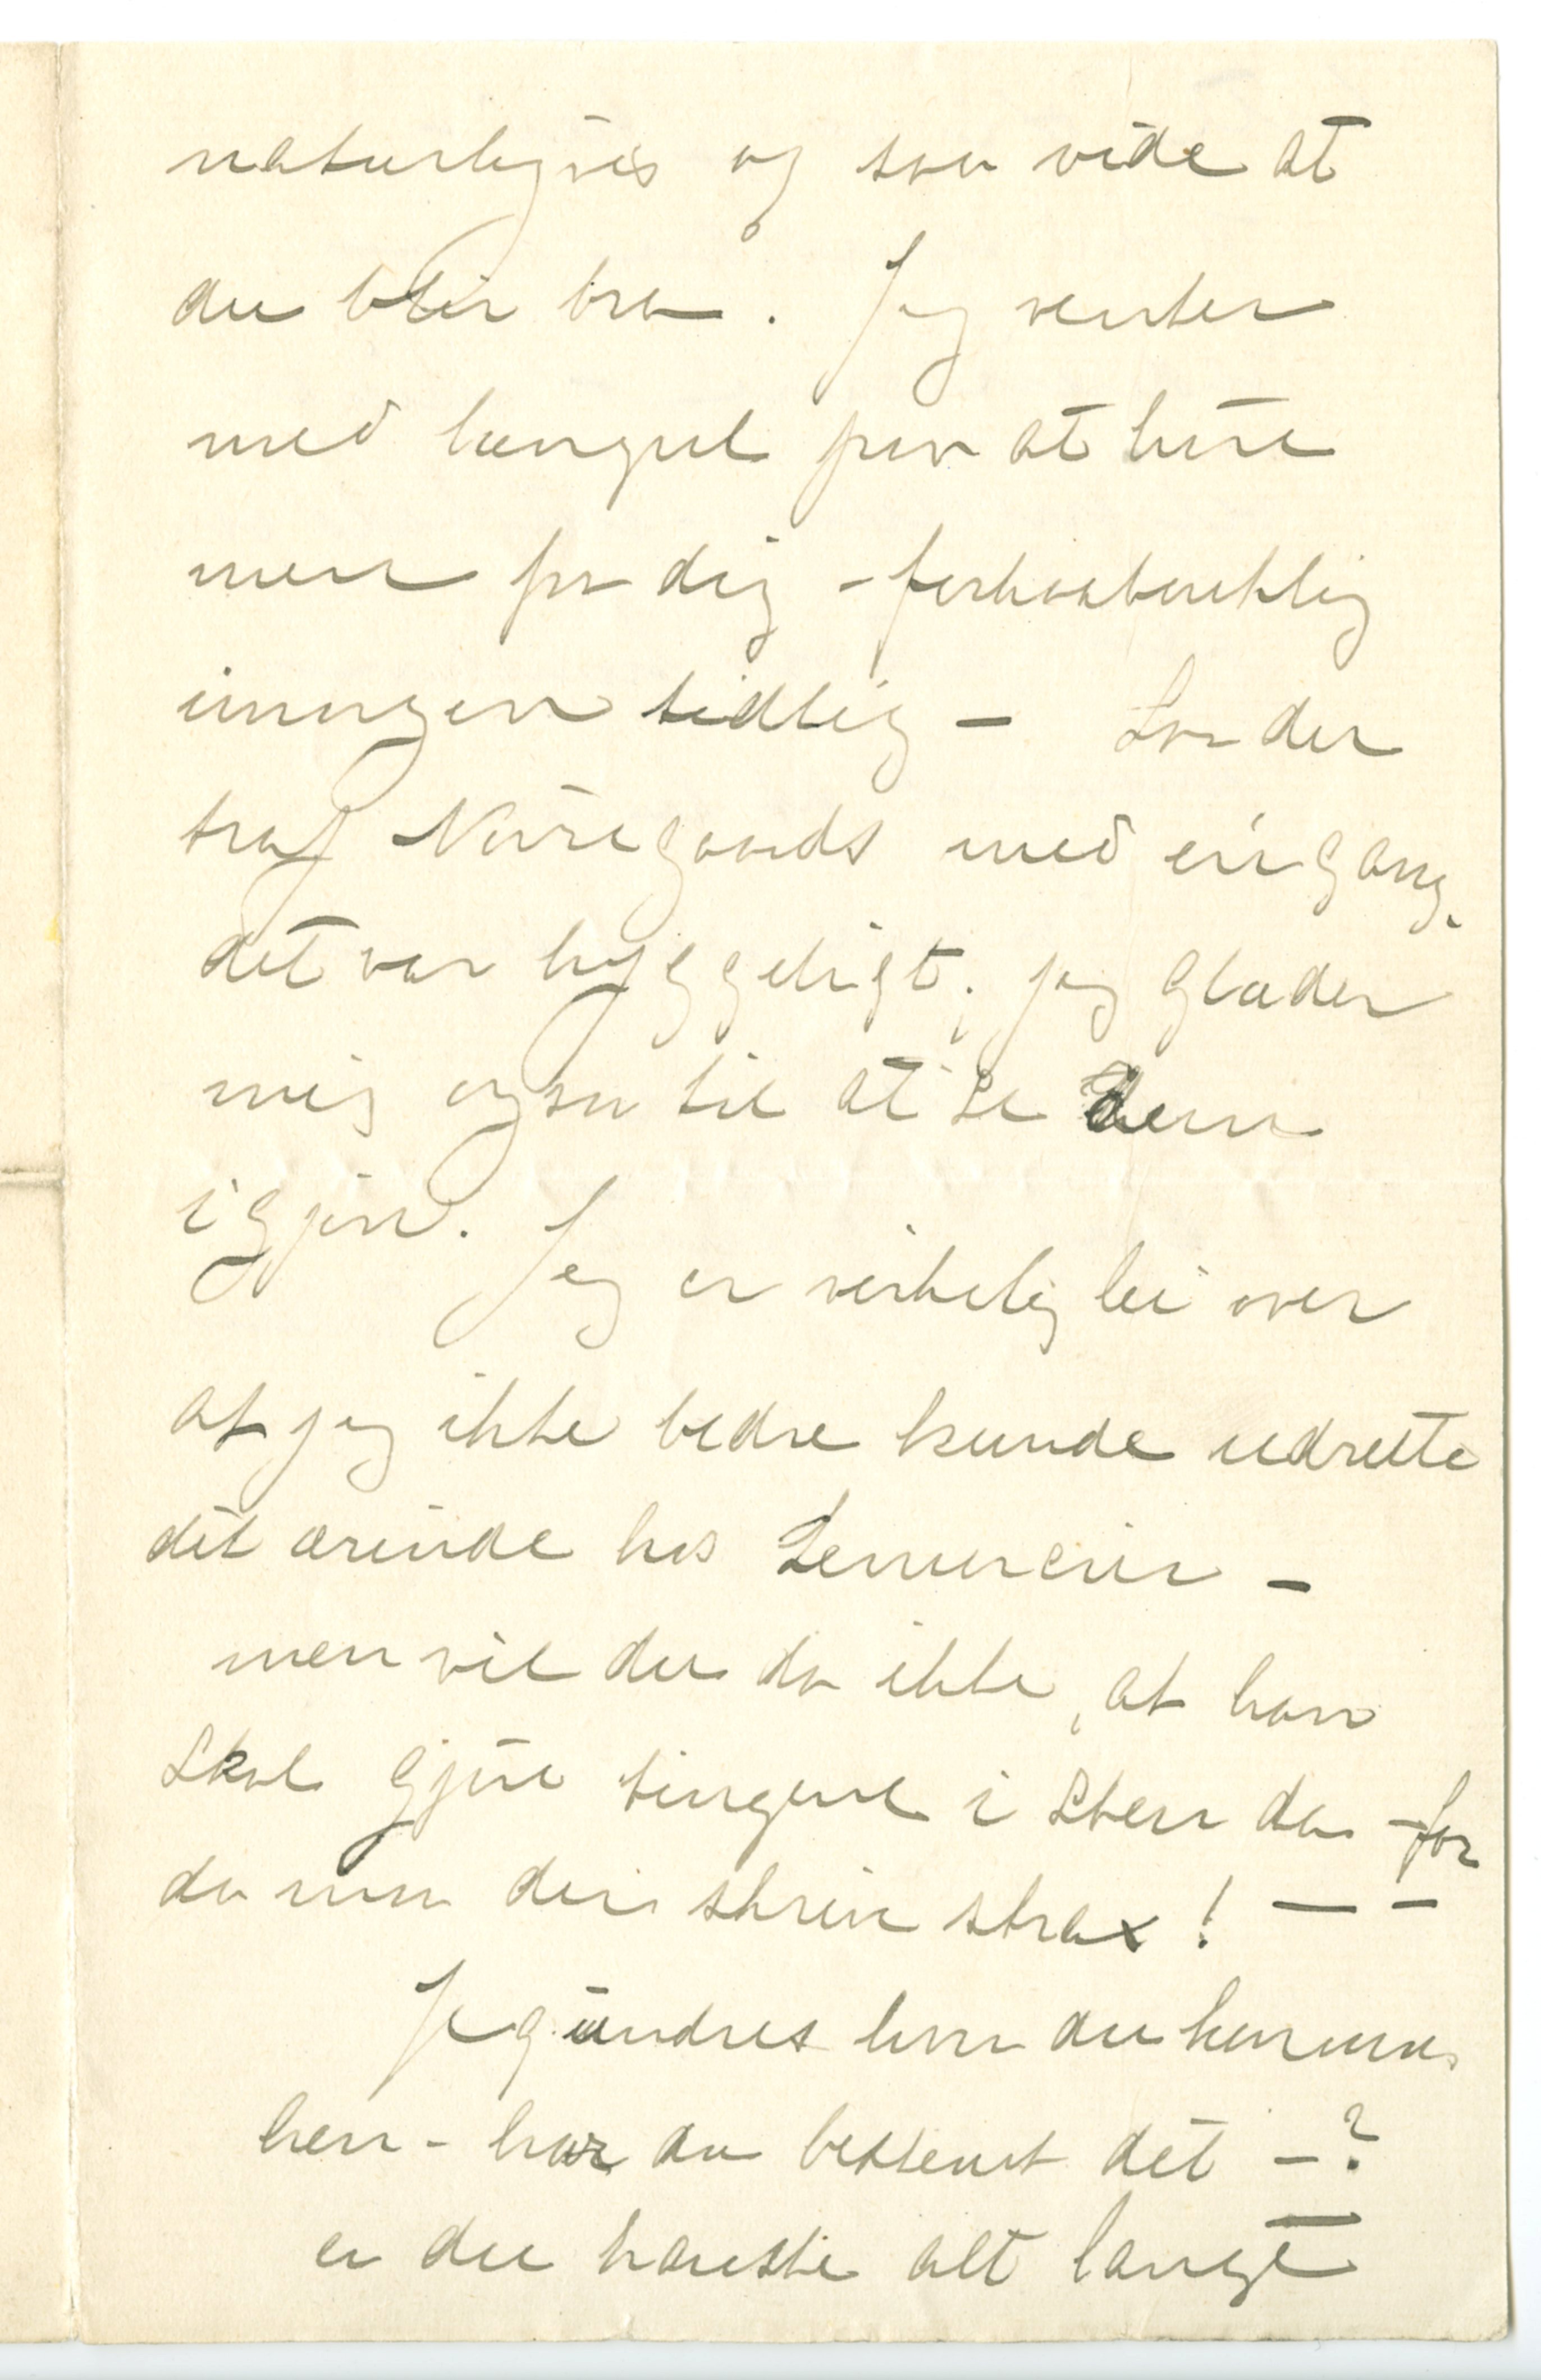 naturligvis og saa vide at
du blir bra. Jeg venter
med længsel paa at høre
mer fra dig – forhaabentlig
imorgen tidlig – Saa du
traf Nørregaards med en gang,
det var hyggeligt; jeg glæder
mig ogsaa til at se dem
igjen. Jeg er virkelig lei over
at jeg ikke bedre kunde udrette
dit ærinde hos Lemercier –
men vil du da ikke, at han
skal gjøre tingene i sten da – for
da maa du skrive strax! — –
Jeg undres hvor du kommer
hen – har du bestemt det – ?
er du kanske alt langt